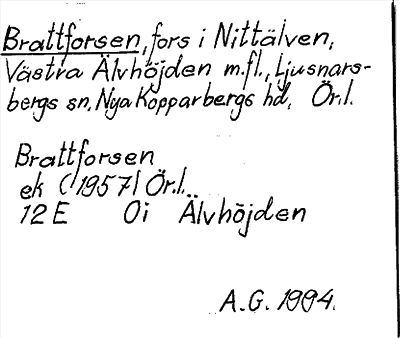 Brattforsen, fors i Nittälven,
Västra Älvhöjden m.fl., Ljusnars-
bergs sn, Nya Kopparbergs hd, Ör.l.
Brattforsen
ek (1957) Ör.l.
12 E 0i Älvhöjden
A.G. 1994.